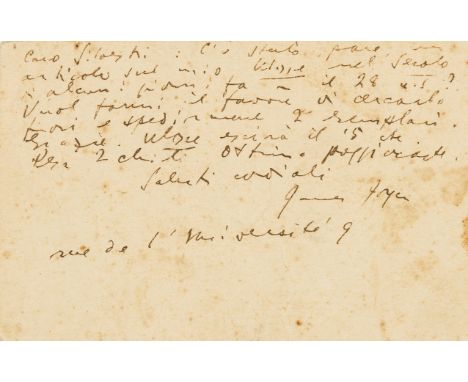 Caro Silvestri: C'è stato, pare, un
articolo sul mio Ulisse nel Secolo
alcuni giorni fa il 28 u.s.?
Vuol farmi il favore di cercarlo
fuori e spedirmene 2 esemplari.
Grazie. Ulisse escirà il 15 
2 chili
Saluti cordiali
James Joyce
rue de l'Université 9